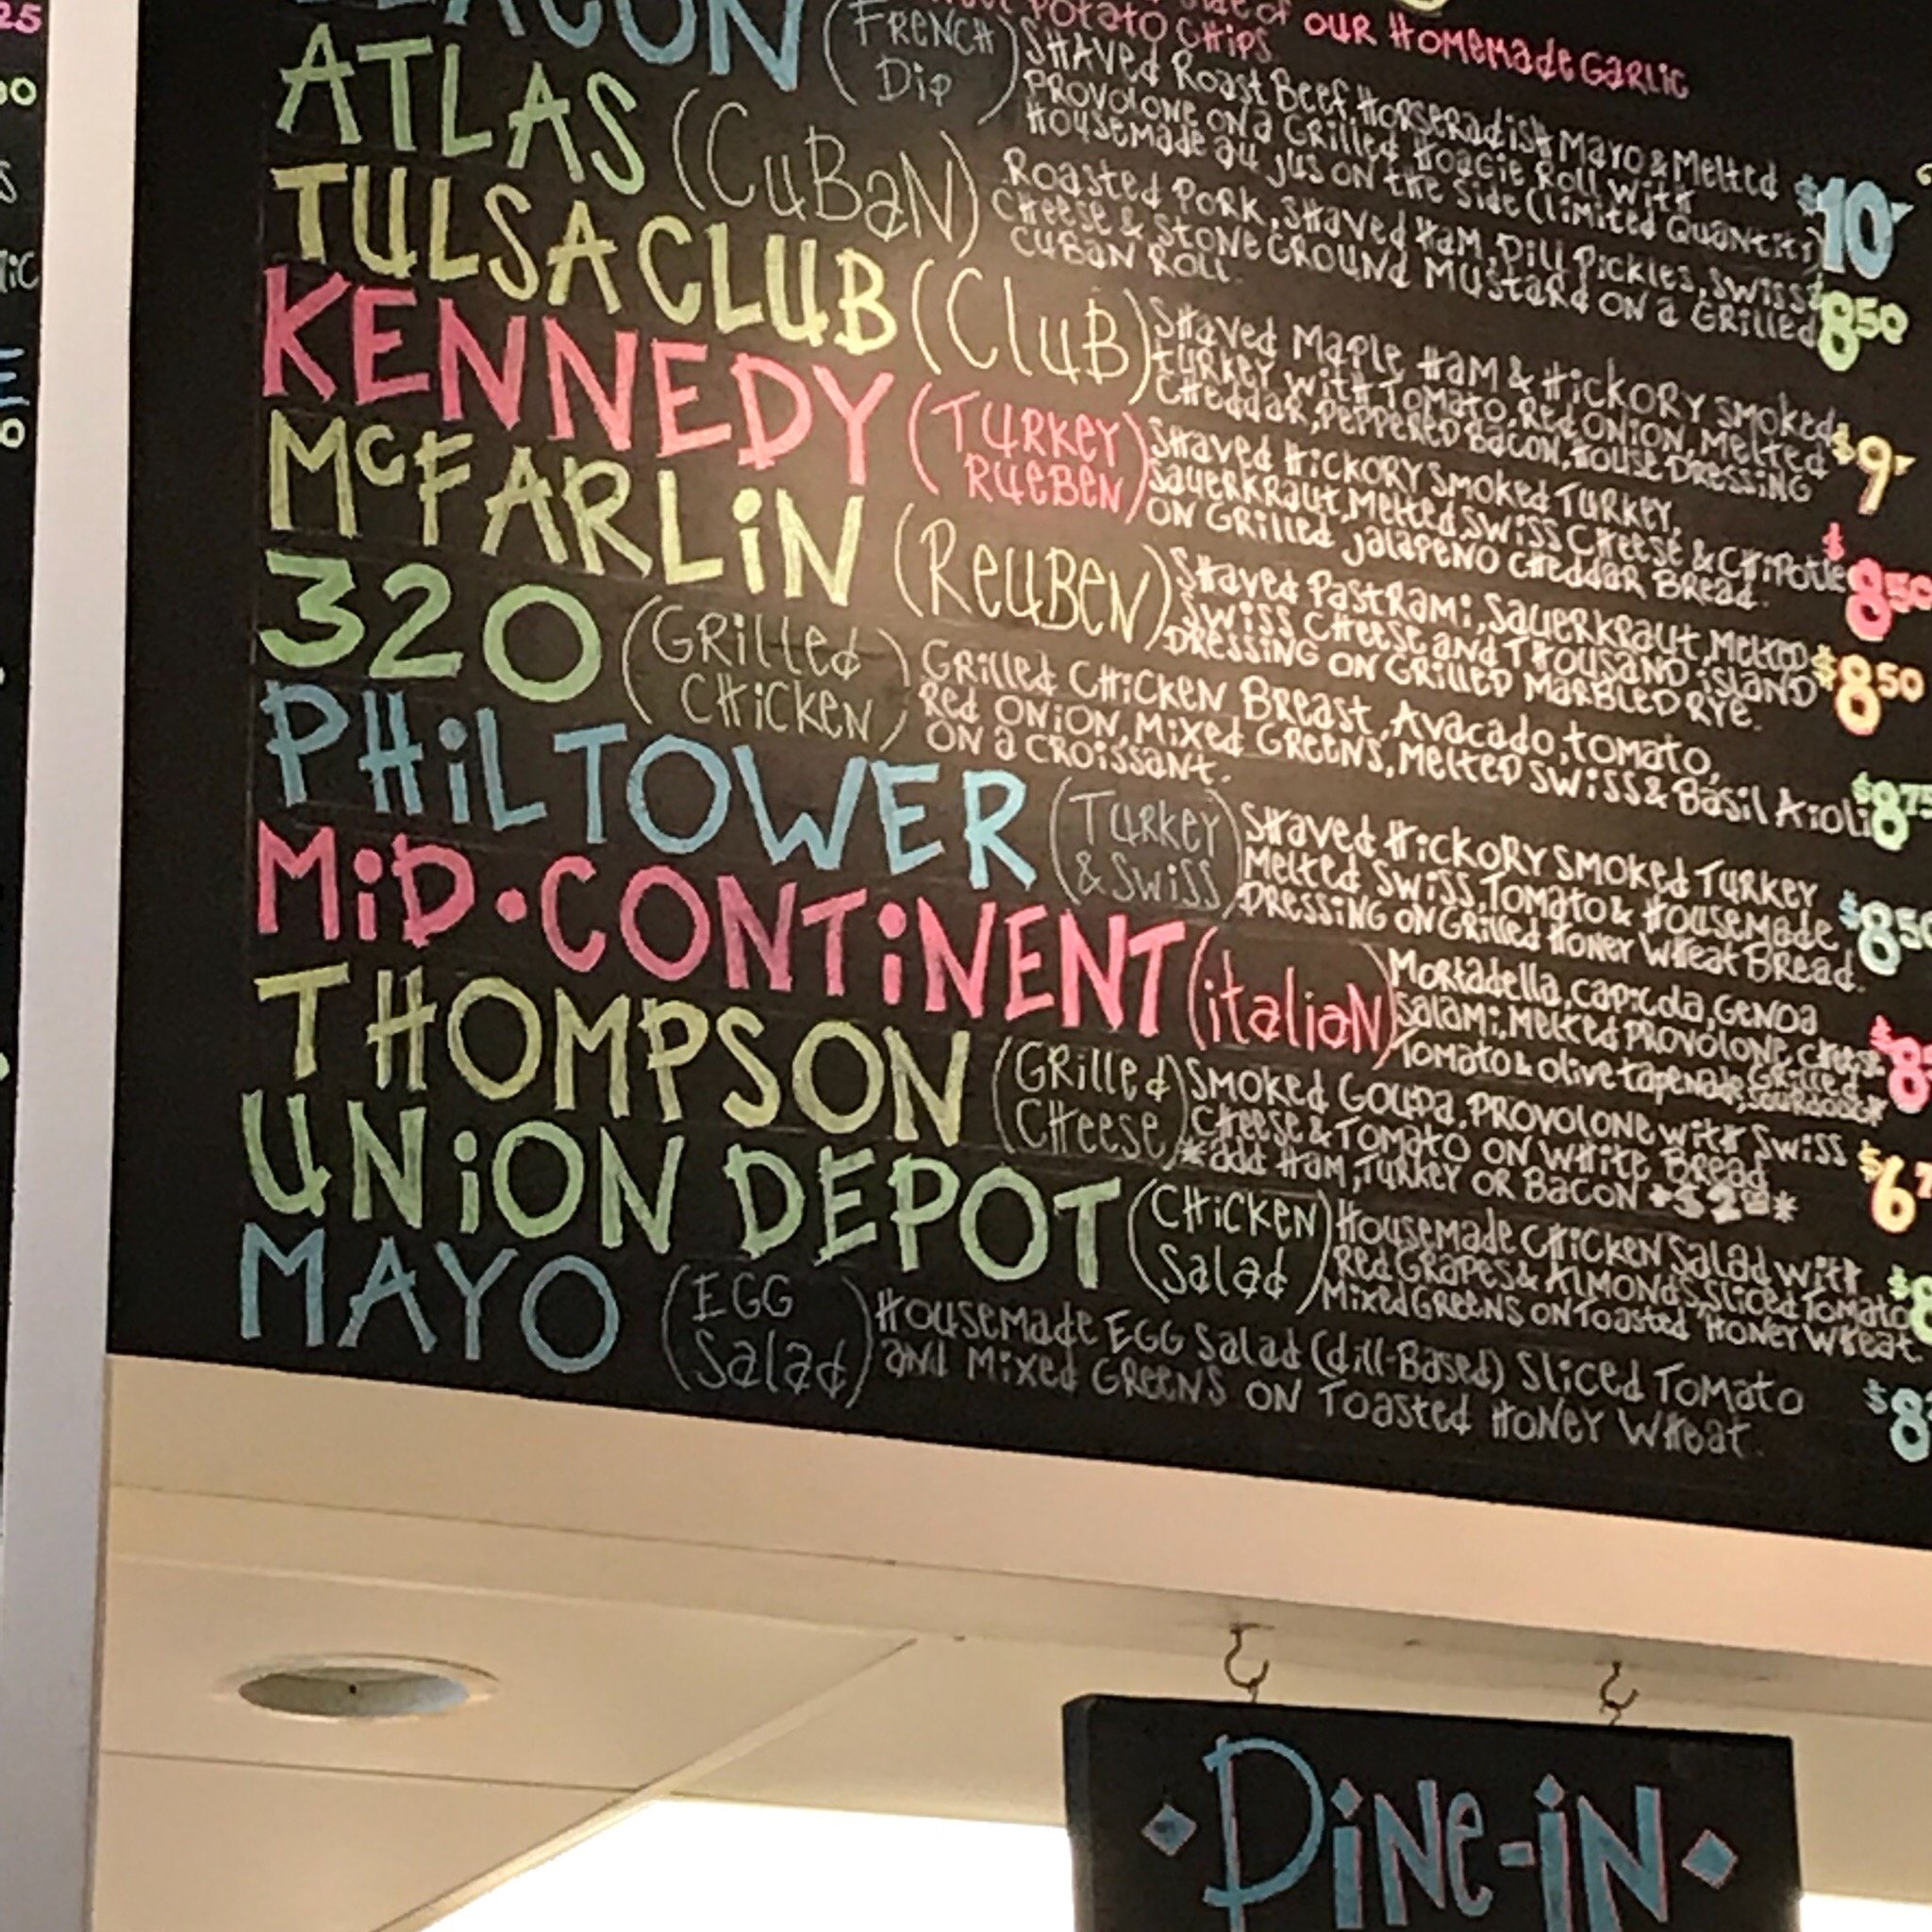 OUR HOMEMADE GARLIC
POTATO CHIPS
(FRENCH DIP) SHAVED ROAST BEEF, HORSERADISH MAYO & MELTED
PROVOLONE ON A GRILLED HOAGIE ROLL WITH
HOUSEMADE AU JUS ON THE SIDE (LIMITED QUANTITY) $10-
ATLAS (CUBAN) ROASTED PORK, SHAVED HAM, DILL PICKLES, SWISS
CHEESE & STONE GROUND MUSTARD ON A GRILLED
CUBAN ROLL. $8 50
TULSA CLUB (CLUB) SHAVED MAPLE HAM & HICKORY SMOKED
TURKEY WITH TOMATO, RED ONION, MELTED
CHEDDAR, PEPPERED BACON, HOUSE DRESSING $9-
KENNEDY (TURKEY RUEBEN) SHAVED HICKORY SMOKED TURKEY,
SAUERKRAUT, MELTED SWISS CHEESE & CHIPOTLE
ON GRILLED JALAPENO CHEDDAR BREAD. $8 50
McFARLIN (REUBEN) SHAVED PASTRAMI, SAUERKRAUT, MELTED
SWISS CHEESE AND THOUSAND ISLAND
DRESSING ON GRILLED MARBLED RYE. $8 50
320 (GRILLED CHICKEN) GRILLED CHICKEN BREAST, AVACADO, TOMATO,
RED ONION, MIXED GREENS, MELTED SWISS & BASIL AIOLI
ON A CROISSANT. $8 75
PHILTOWER (TURKEY & SWISS) SHAVED HICKORY SMOKED TURKEY
MELTED SWISS, TOMATO & HOUSEMADE
DRESSING ON GRILLED HONEY WHEAT BREAD. $8 50
MID·CONTINENT (ITALIAN) MORTADELLA, CAPICOLA, GENOA
SALAMI, MELTED PROVOLONE CHEESE
TOMATO & OLIVE TAPENADE, GRILLED SOURDOUGH $8
THOMPSON (GRILLED CHEESE) SMOKED GOUDA, PROVOLONE WITH SWISS
CHEESE & TOMATO ON WHITE BREAD
*ADD HAM, TURKEY OR BACON $6 7
UNION DEPOT (CHICKEN SALAD) HOUSEMADE CHICKEN SALAD WITH
RED GRAPES & ALMONDS, SLICED TOMATO
MIXED GREENS ON TOASTED HONEY WHEAT. $8
MAYO (EGG SALAD) HOUSEMADE EGG SALAD (DILL-BASED) SLICED TOMATO
AND MIXED GREENS ON TOASTED HONEY WHEAT. $8
DINE-IN